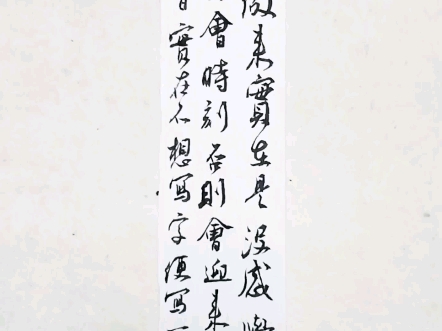 來實在是沒感覺
會時刻否則會迎來
實在不想写字便写